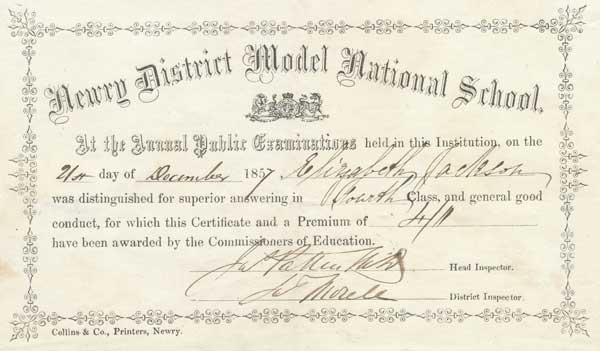 Newry District Model National School.
At the Annual Public Examinations held in this Institution, on the
21st day of December 1857 Elizabeth Jackson
was distinguished for superior answering in Fourth Class, and general good
conduct, for which this Certificate and a Premium of 4/
have been awarded by the Commissioners of Education.
Jas Patten Head Inspector.
District Inspector.
Collins & Co., Printers, Newry.